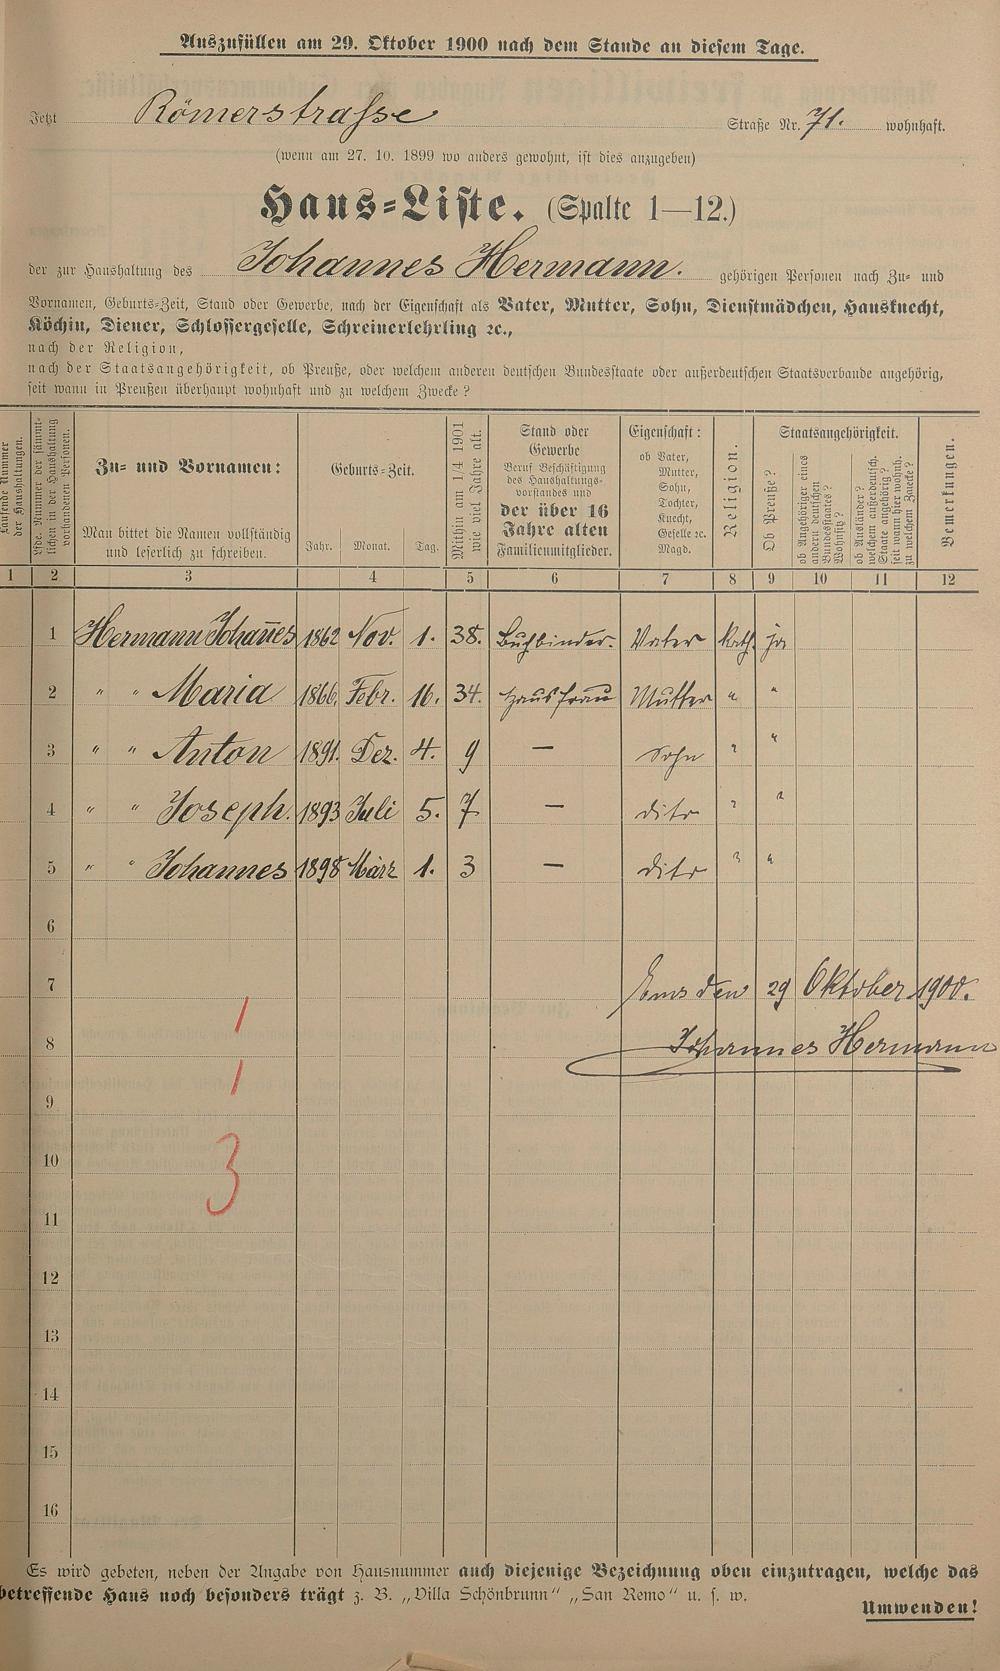 Auszufüllen am 29. Oktober 1900 nach dem Stande an diesem Tage.
Jetzt Römerstrasse Straße Nr. 71. wohnhaft.
(wenn am 27. 10. 1899 wo anders gewohnt, ist dies anzugeben)
Haus-Liste. (Spalte 1—12.)
der zur Haushaltung des Johannes Hermann. gehörigen Personen nach Zu- und
Vornamen, Geburts-Zeit, Stand oder Gewerbe, nach der Eigenschaft als Vater, Mutter, Sohn, Dienstmädchen, Hausknecht,
Köchin, Diener, Schlossergeselle, Schreinerlehrling ꝛc.,
nach der Religion,
nach der Staatsangehörigkeit, ob Preuße, oder welchem anderen deutschen Bundesstaate oder außerdeutschen Staatsverbande angehörig,
seit wann in Preußen überhaupt wohnhaft und zu welchem Zwecke?
Laufende Nummer
der Haushaltungen.
Lfde. Nummer der sämmt-
lichen in der Haushaltung
vorhandenen Personen.
Zu- und Vornamen:
Man bittet die Namen vollständig
und leserlich zu schreiben.
Geburts-Zeit.
Jahr. Monat. Tag.
Mithin am 1/4 1901
wie viel Jahre alt.
Stand oder
Gewerbe
Beruf Beschäftigung
des Haushaltungs-
vorstandes und
der über 16
Jahre alten
Familienmitglieder.
Eigenschaft:
ob Vater,
Mutter,
Sohn,
Tochter,
Knecht,
Geselle ꝛc.
Magd.
Religion.
Staatsangehörigkeit.
Ob Preuße?
ob Angehöriger eines
andern deutschen
Bundesstaates?
Wohnsitz?
ob Ausländer?
welchem außerdeutsch.
Staate angehörig?
seit wann hier wohnh.
zu welchem Zwecke?
Bemerkungen.
1 2 3 4 5 6 7 8 9 10 11 12
1 Hermann Johannes 1862 Nov. 1. 38. Buchbinder. Vater Kath. ja
2 " " Maria 1866. Febr. 16. 34. Hausfrau Mutter " "
3 " " Anton 1891. Dez. 4. 9 — Sohn " "
4 " " Joseph. 1893 Juli 5. 7 — dito " "
5 " " Johannes 1898 März 1. 3 — dito " "
6
7 Ems den 29 Oktober 1900.
8 Johannes Hermann
1
1
9
10
3
11
12
13
14
15
16
Es wird gebeten, neben der Angabe von Hausnummer auch diejenige Bezeichnung oben einzutragen, welche das
betreffende Haus noch besonders trägt z. B. „Villa Schönbrunn" „San Remo" u. s. w.
Umwenden!